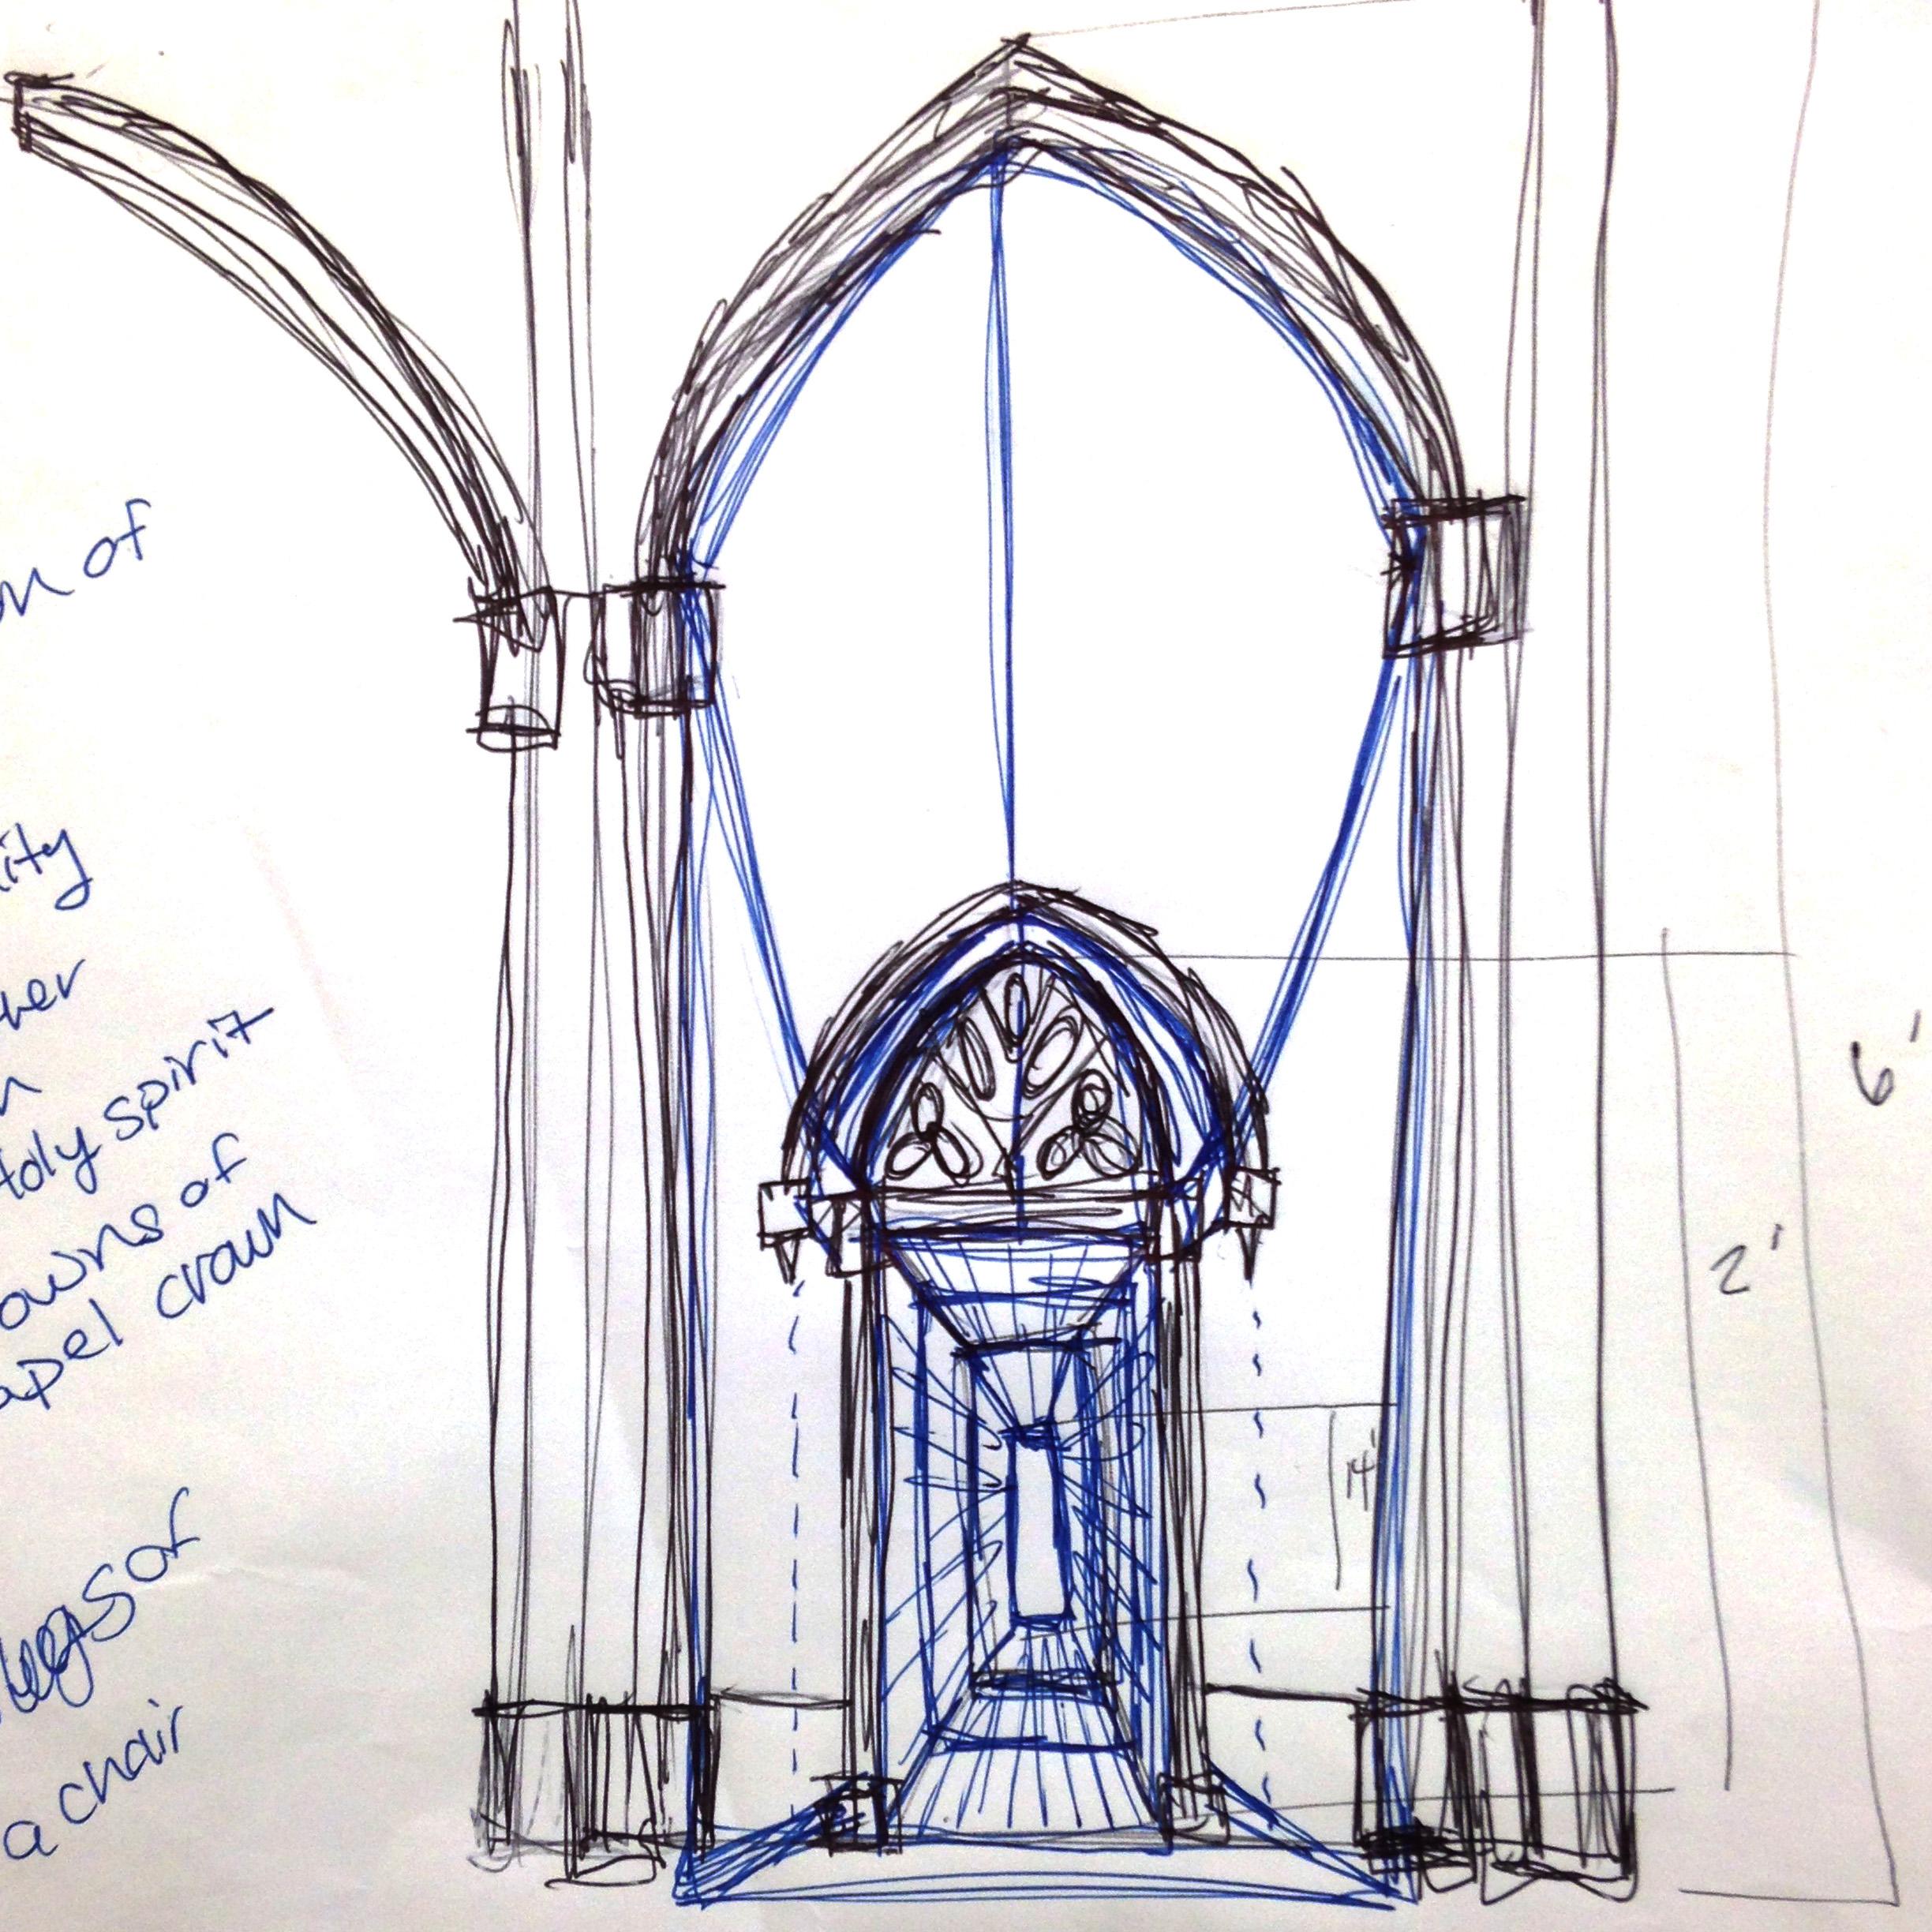 on of
ity
her
n
Holy spirit
owns of
apel crown
legs of
a chair
6'
2'
14'